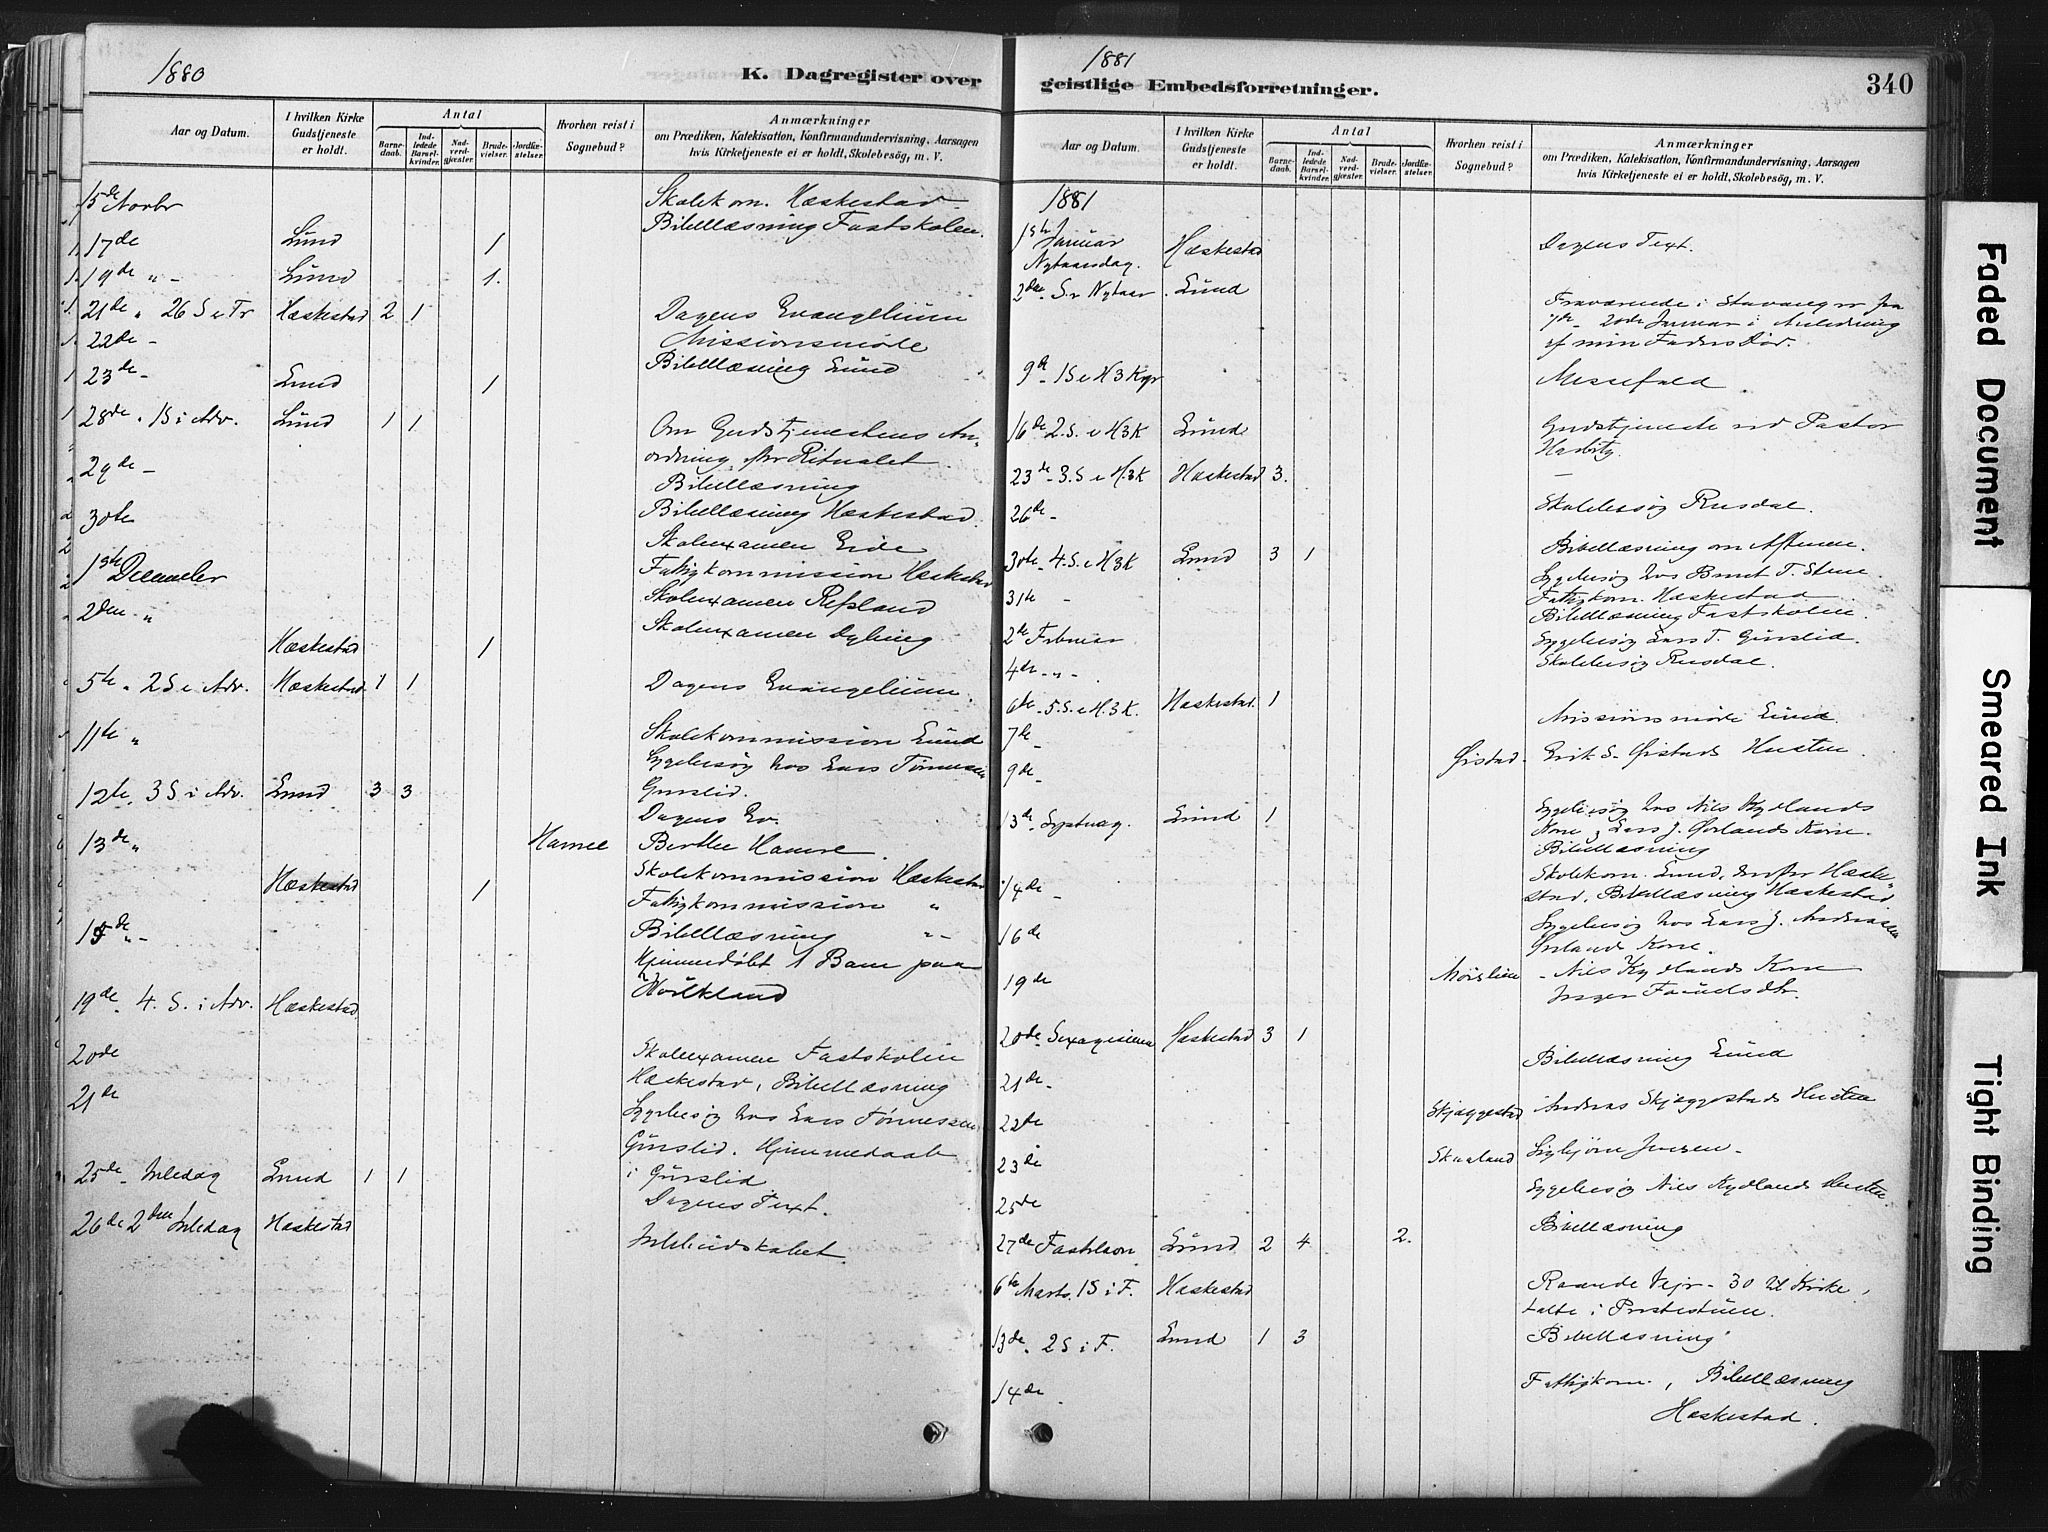 1880
K. Dagregister over
Aar og Datum.
I hvilken Kirke Gudstjeneste er holdt.
Antal
Barnedaab.
Indledede Barselkvinder.
Nadverdgjæster.
Brudevielser.
Jordfæstelser.
Hvorhen reist i Sognebud?
Anmærkninger
om Prædiken, Katekisation, Konfirmandundervisning, Aarsagen
hvis Kirketjeneste ei er holdt, Skolebesøg, m. V.
15de Novbr Skolekom. Hæskestad
Bibellæsning Fastskolen.
17de Lund 1
19de " - Lund 1.
21de " 26 S e Tr Hæskestad 2 1 Dagens Evangelium
22de - Missionsmøde
Bibellæsning Lund
23de - Lund 1
28de " 1S i Adv. Lund 1 1 Om Gudstjenestens An-
ordning efter Ritualet
29de - Bibellæsning
30te Bibellæsning Hæskestad.
Skolexamen Eide
1ste December Fattigkommission Hæskestad
2den " Skolexamen Refsland
Skolexamen Dybing
Hæskestad 1
5te " 2S i Adv. Hæskestad 1 1 Dagens Evangelium.
11te " Skolekommission Lund
Sygebesøg hos Lars Tønnesen
Gurslid.
12te, 3 S i Adv. Lund 3 3 Dagens Ev.
13de " Hamre Berthe Hamre.
Hæskestad 1 Skolekommission Hæskestad
Fattigkommission "
15de " - Bibellæsning " -
Hjemmedøbt 1 Barn paa
19de - 4. S. i Adv. Hæskestad.
20de Skolexamen Fastskolen
Hæskestad, Bibellæsning
21de Sygebesøg hos Lars Tønnessen
Gurslid. Hjemmedaab
i Gurslid
25de - Juledag Lund 1 1 Dagens Text.
26de 2den Juledag Hæskestad Julebudskabet.
1881
geistlige Embedsforretninger.
340
Aar og Datum.
I hvilken Kirke Gudstjeneste er holdt.
Antal
Barnedaab.
Indledede Barselkvinder.
Nadverdgjæster.
Brudevielser.
Jordfæstelser.
Hvorhen reist i Sognebud?
Anmærkninger
om Prædiken, Katekisation, Konfirmandundervisning, Aarsagen
hvis Kirketjeneste ei er holdt, Skolebesøg, m. V.
1881
1ste Januar Hæskestad Dagens Text.
Nytaarsdag.
2den S. e Nytaar. Lund Fraværende i Stavanger fra
7de - 20de Januar i Anledning
af min Faders Død.
9de - 1S e H3 Kgr Messefald.
16de 2. S. e H3K Lunde Gudstjeneste ved Pastor
23de - 3. S e H.3K Hæskestad 3. -
26de - Skolebesøg Rusdal.
30te - 4. S. e H3K Lund 3 1 Bibellæsning om Aftenen.
Sygebesøg hos Berent T. Stene.
31te - Fattigkom. Hæskestad
Bibellæsning Fastskolen.
2de Februar Sygebesøg Lars T. Gurslid.
4de - " - . Skolebesøg Rusdal.
6te - 5. S. e H. 3 K. Hæskestad. 1
7de - Missionsmøde Lund.
9de - Ørstad. Erik S. Ørstads Hustru.
13de. Septuag. Lund 1 Sygebesøg hos Nils Kydlands
Kone, Lars J. Ørlands Kone.
Bibellæsning
14de - Skolekom. Lund, derefter Hæske-
stad, Bibellæsning Hæskestad
16de Sygebesøg hos Lars J. Andreassen
Ørland Kone.
19de - Nils Kydlands Kone
20de Sexagesima Hæskestad 3 1
21de - Bibellæsning Lund
22de Skjæggestad Andreas Skjæggestads Hustru
23de Skaaland Sigbjørn Jensen -
25de Sygebesøg Nils Kydlands Hustru
27de Fastelavn Lund 2 4 2. Bibellæsning
6te Marts. 1S i F. Hæskestad Raande Vejr - 30 til Kirke,
talte i Præstestuen.
13de - 2S i F. Lund 1 3 Bibellæsning
14de. Fattigkom., Bibellæsning
Hæskestad.
Faded Document
Smeared Ink
Tight Binding